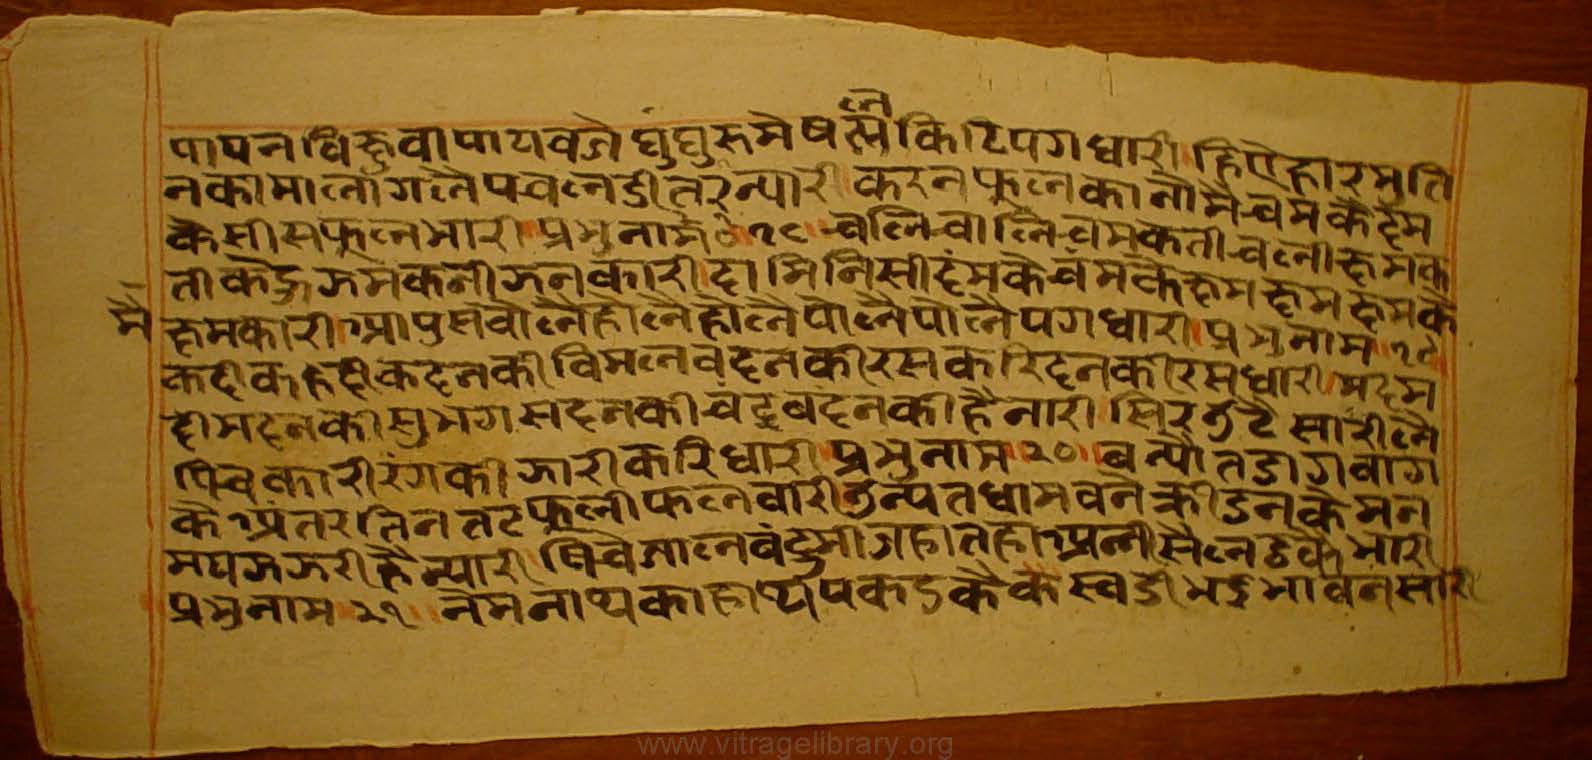 पापनविछुवापायवजेघुंघुरुमेषलनैकिटिपगधारी।हिऐहारमुति
नकामालागलैपचलडीतरन्यारी।करनफुलकानौमैचमकैदम
कैसीसफुलभारी।प्रभुनाम०१८।चलिचालिचमकतीचलीछमक
तीकैझमकलीझनकारी।दामिनिसीदंमकैचंमकैछमछमछमकै
छमकारी।आपुसवोलैहोलैहोलैपोलैपोलैपगधारी।प्रभुनाम१९
मै
कदीकहदीकदनकीविमलवदनकीरसकरिदनकीरसधारी।मदम
दीमदनकीसुभगसदनकीचंद्रवदनकीहैनारी।सिरउटैसारीलै
पिचकारीरंगकीझारीकरिधारी।प्रभुनाम२०।बन्यौतडागवाग
कैअंतरतिनतटफुलीफलवारी।उन्पतधामवनेक्रीडनकैमन
मयझझरीहैन्यारी।षिचेजालवंदुमीजहातहाअलीसैलडकैभारी
प्रभुनाम२१।नेमनाथकाहाथपकडकैकैस्वडीभइभावनसारी
www.vitragelibrary.org